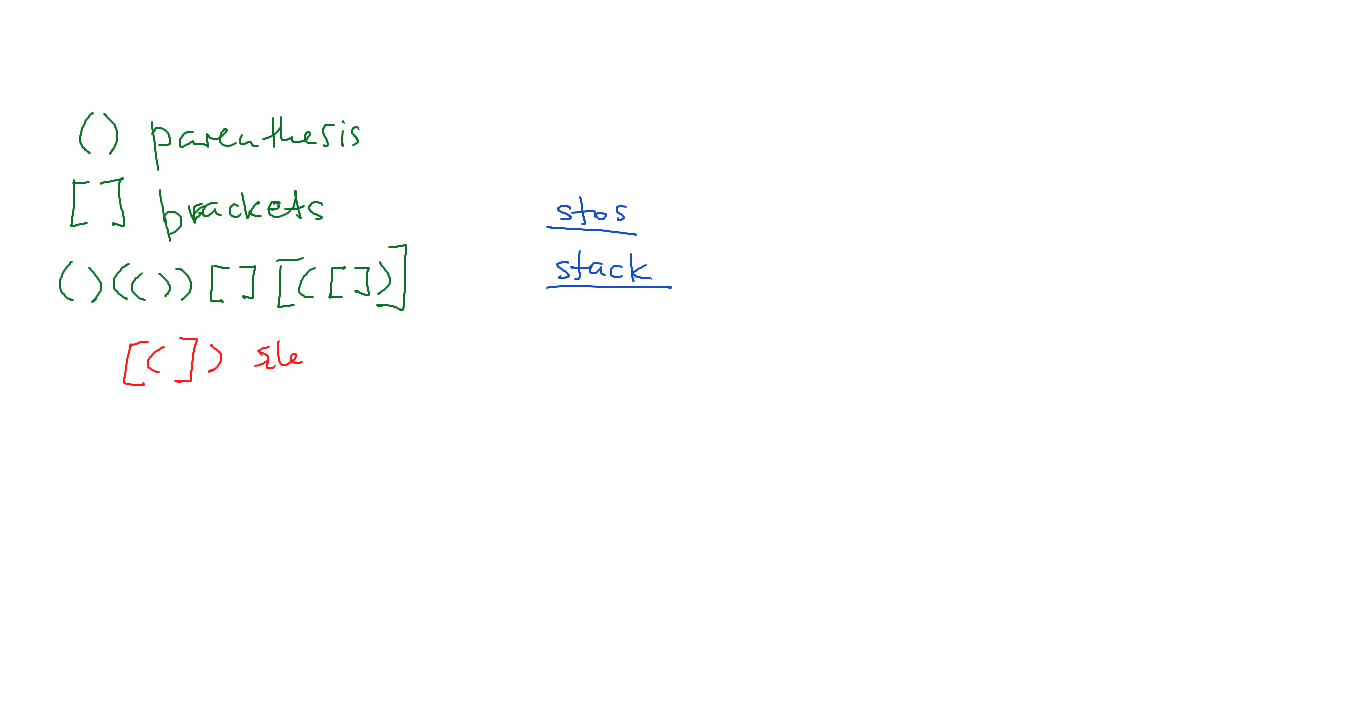 () parenthesis
[] brackets
()(())[][([])]
[(]) źle
stos
stack